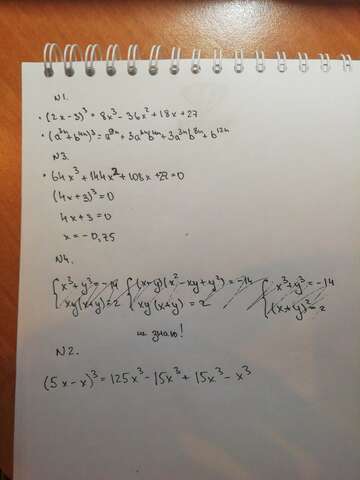 N1.
• (2x-3)³ = 8x³ - 36x² + 18x + 27
• (a³ⁿ+b⁴ⁿ)³ = a⁹ⁿ + 3a⁶ⁿb⁴ⁿ + 3a³ⁿb⁸ⁿ + b¹²ⁿ
N3.
• 64x³ + 144x² + 108x + 27 = 0
(4x+3)³ = 0
4x+3 = 0
x = -0,75
N4.
{x³+y³ = -14 {(x+y)(x²-xy+y²) = -14 {x³+y³ = -14
xy(x+y) = 2 xy(x+y) = 2 (x+y)³ = 2
не знаю!
N2.
(5x-x)³ = 125x³ - 15x³ + 15x³ - x³